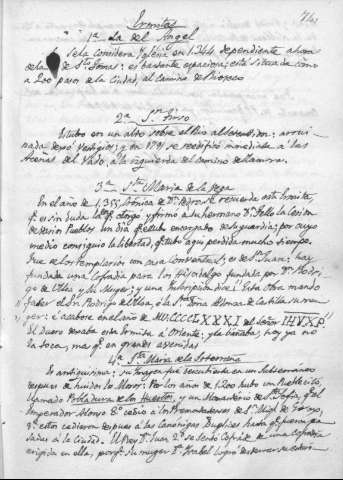 Ermitas
1ª La del Angel
Se la considera Iglesia en 1.344 dependiente ahora
de la de Sto. Tomas: es bastante espaciosa; esta situada como
a 200 pasos de la Ciudad, al camino de Rioseco
2ª Sn. Tirso
Estubo en un alto sobre el Rio al
nada dejó vestigios; y en 1791 se reedificó inmediata á las
Aceñas del Vado, a la izquierda del camino de Zamora.
3ª Sta. Maria de la Vega
En el año de 1.355, Crónica de Dn. Pedro, se recuerda esta Ermita,
qe. es sin duda la qe. otorgo y firmó a su hermano Dn. Tello la cesion
de varios Pueblos un dia qe. estubo encargado de su guardia; por cuyo
medio consiguio la libertad, qe. tubo aqui perdida mucho tiempo.
Fue de los Templarios con casa Conventual; es de Sn. Juan; hay
fundada una Cofradia para los Hijosdalgo fundada por Dn. Rodri-
go de Ulloa y su Muger; y una Inscripcion dice: Esta Obra mando
facer el Sr. Rodrigo de Ulloa, é la Sra. Doña Aldonza de Castilla su mu-
ger: é acabose en el año de MCCCCLXXXI del Señor IHUXP.
El duero pasaba esta Ermita á Oriente, y la bañaba; hoy ya no
la toca, mas qe. en grandes avenidas.
4ª Sta. Maria de la Soterraña
Es antiquisima; su traza fue descubierta en un Subterraneo
despues de huidos los Moros. Por los años de 1.200 hubo un Pueblecito,
llamado Pobladura de los Huertos, y un Monasterio de Sta. Sofia, qe. el
Emperador Alonso 8º. cedió á los Premostratenses de Sn. Migl. de Groz,
qe. estos cedieron despues á las Canónigas Duplices hasta qe. fueron pa-
sadas á la Ciudad. El Rey Dn. Juan 2º se sento Cofrade de una Cofradia
erigida en ella, porqe. su muger Da. Isabel logró